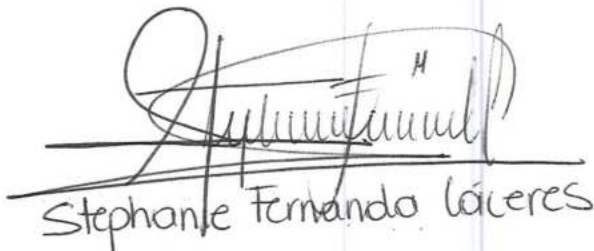 Stephanie Fernanda Cáceres